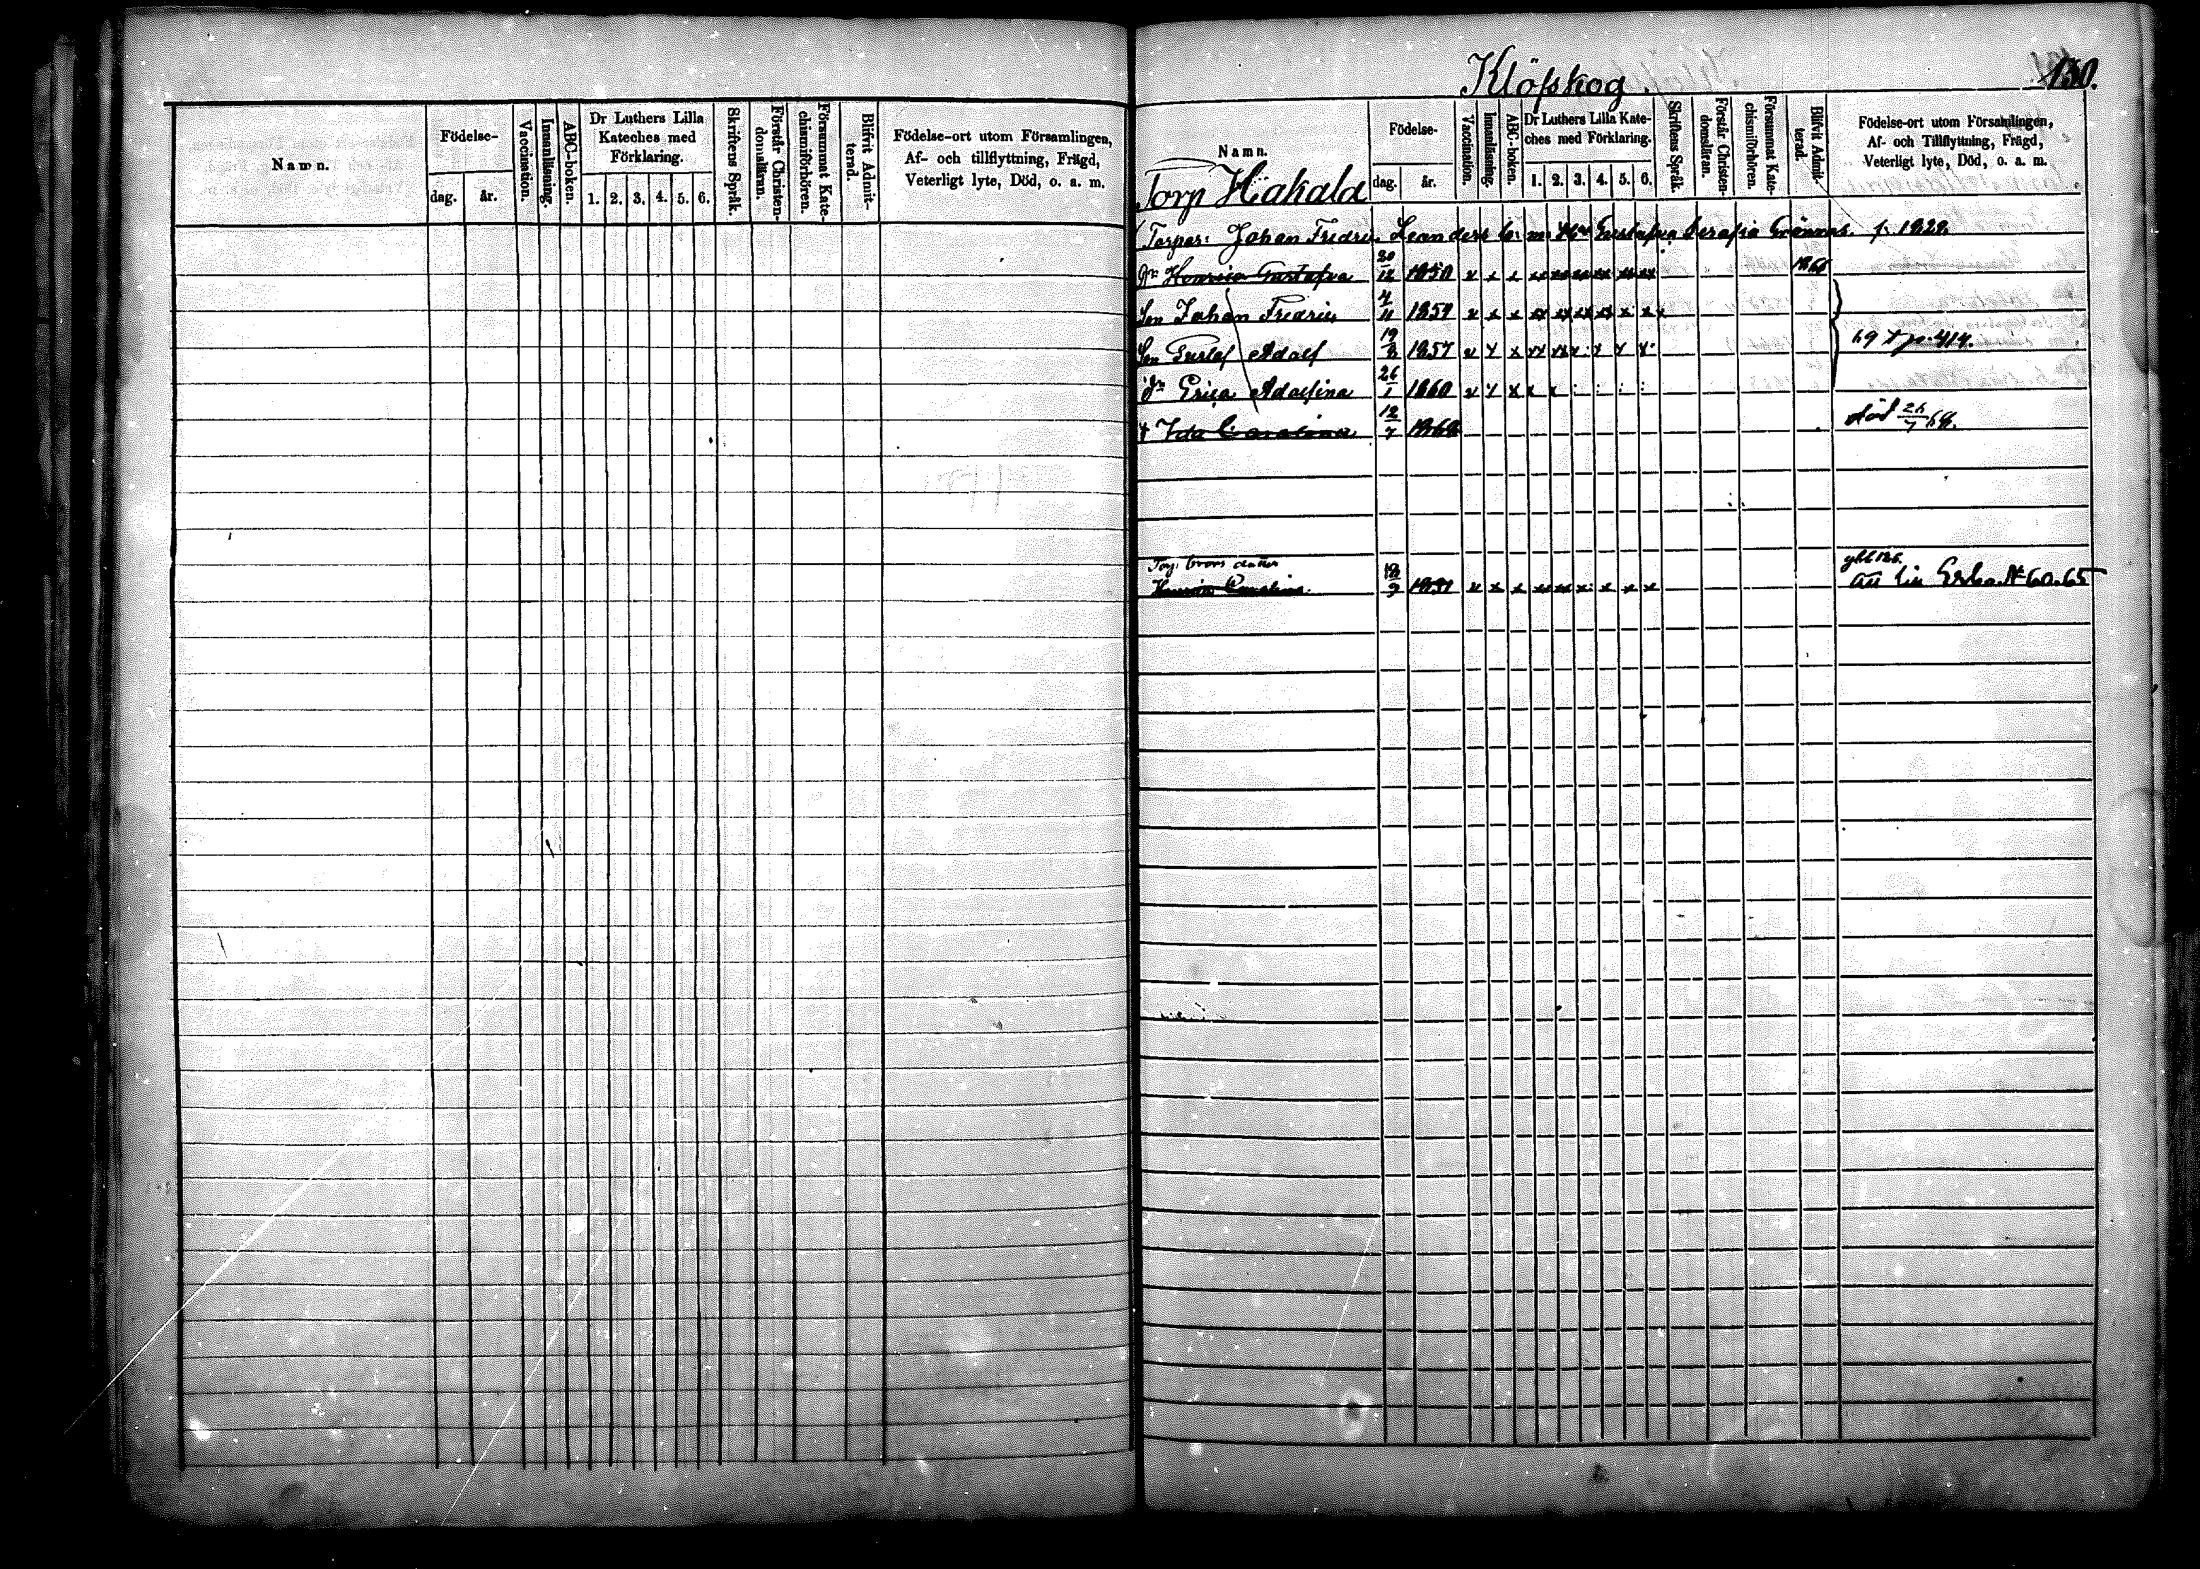 Klöfskog.
130.
Namn.
Födelse-
dag.
år.
Vaccination.
Innanläsning.
ABC-boken.
Dr Luthers Lilla
Kateches med
Förklaring.
1. 2. 3. 4. 5. 6.
Skriftens Språk.
Förstår Christen-
domsläran.
Försummat Kate-
chismiförhören.
Blifvit Admit-
terad.
Födelse-ort utom Församlingen,
Af- och tillflyttning, Frägd,
Veterligt lyte, Död, o. a. m.
Namn.
Torp Hakala
Födelse-
dag.
år.
Vaccination.
Innanläsning.
ABC-boken.
Dr Luthers Lilla Kate-
ches med Förklaring.
1. 2. 3. 4. 5. 6.
Skriftens Språk.
Förstår Christen-
domsläran.
Försummat Kate-
chismiförhören.
Blifvit Admit-
terad.
Födelse-ort utom Församlingen,
Af- och Tillflyttning, Frägd,
Veterligt lyte, Död, o. a. m.
Torpar: Johan Fredric Leanders Gustafva Serafia f. 1828.
Gustafva 20/12 1850 x x x xx xx xx xx xx xx
Son Johan Fredric 4/11 1854 x x x xx xx xx xx x x x
Son Gustaf Adolf 1857 69 p. 414.
Dr Erica Adolfina 26/1 1860
† Ida Carolina 12/7 död 69.
Torp: brors dotter
Carolina x x x 60. 65